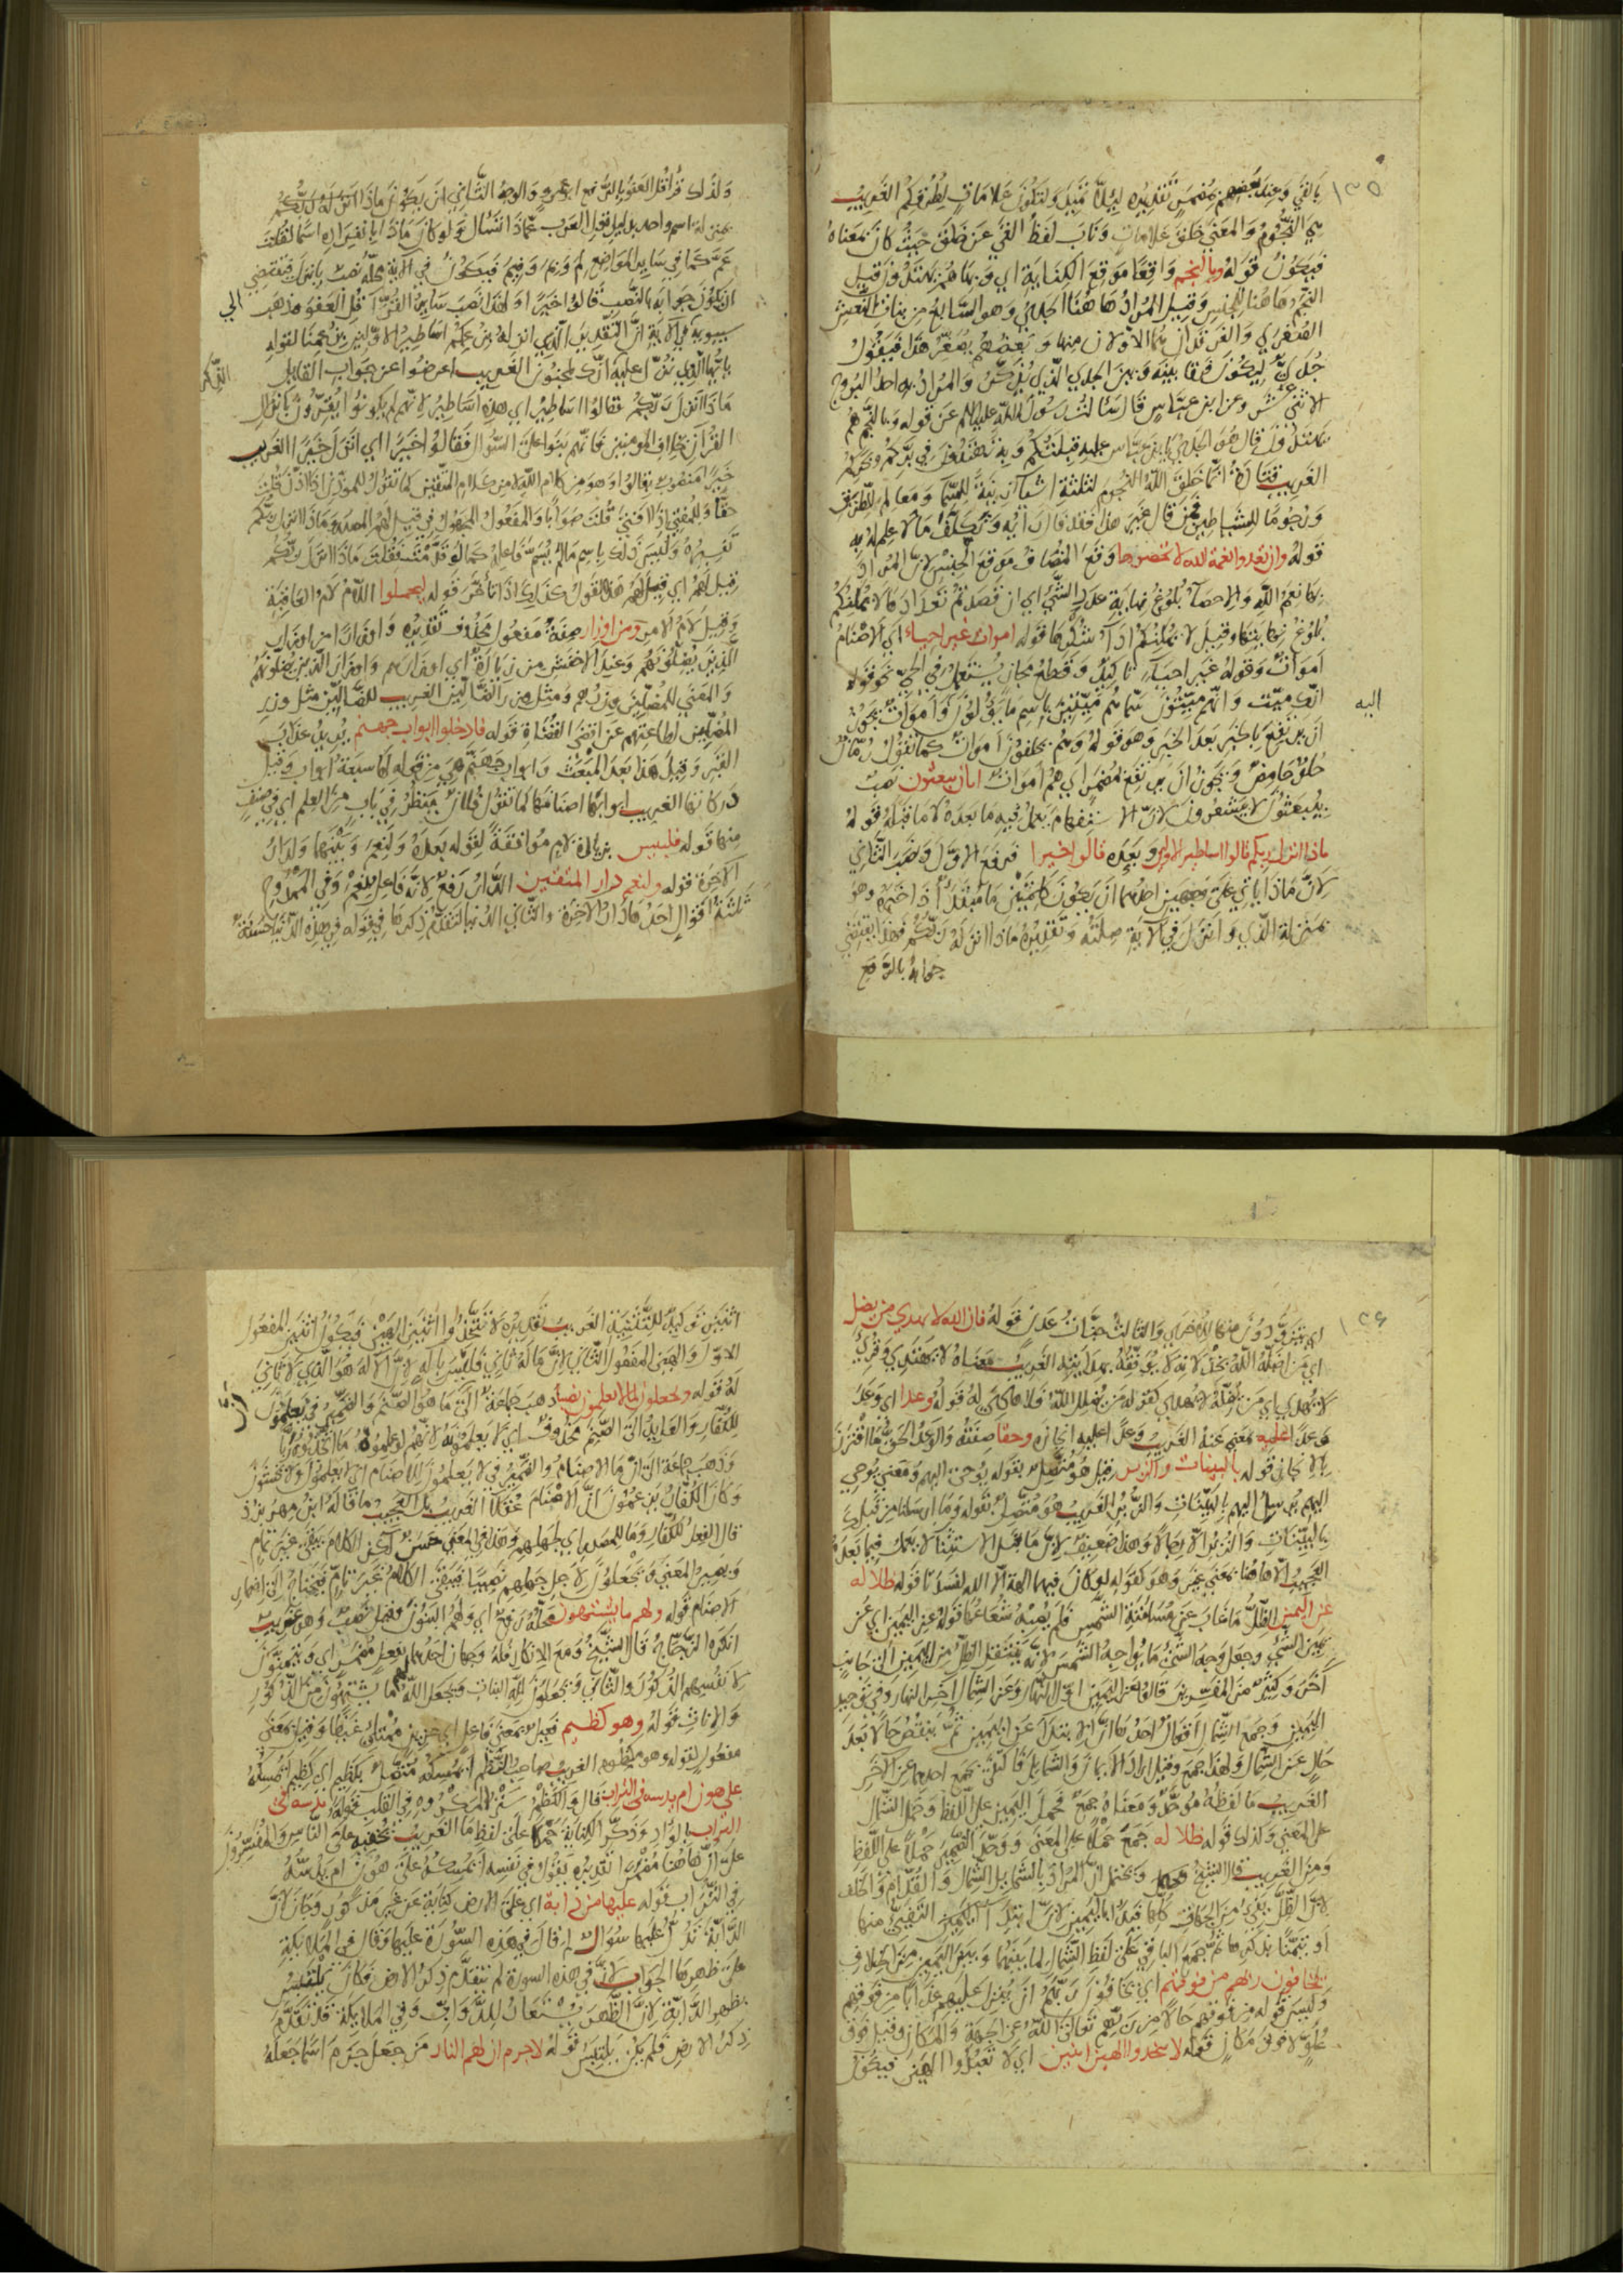 بالقي وعند بعضهم مضمر تقديره لئلا تميل ولتكون علامات لطرقكم الغريب
هي النجوم والمعنى خلق علامات وناب لفظ القي عن خلق حيث كان بمعناه
فيكون قوله وبالنجم واقعا موقع الكناية اي وبها هم يهتدون قيل
النجم هاهنا للجنس وقيل المراد هاهنا الجدي وهو السابع من بنات النعش
الصغرى والفرقدان هما الاولان منها وبعضهم يصغر هذا فيقول
جدي ليكون فرقا بينه وبين الجدي الذي يذكر والمراد به احد البروج
الاثني عشر وعن ابن عباس قال سالت رسول الله عليه السلم عن قوله وبالنجم هم
يهتدون قال هو الجدي يا ابن عباس عليه قبلتكم وبه تهتدون في بركم وبحركم
الغريب قتادة انما خلق الله النجوم لثلثة اشيآء زينة للسما ومعالم للطريق
ورجوما للشياطين فمن قال غير هذا فقد قال رايه وتكلف ما لا علم له به
قوله وان تعدوا نعمة الله لا تحصوها وقع المضاف موقع الجنس لان المراد
بها نعم الله والاحصآء بلوغ نهاية عدد الشي اي ان قصدتم تعدادها لا يمكنكم
بلوغ نهايتها وقيل لا يمكنكم ادآء شكرها قوله اموات غير احياء اي الاصنام
اموات وقوله غير احيآء تاكيد وقطع مجاز يستعمل في الحي نحو قوله
انك ميت وانهم ميتون سماهم ميتين باسم ما يؤولون اليه واموات يجوز
ان يرتفع بالخبر بعد الخبر وهو قوله وهم يخلقون اموات كما تقول رمان
حلو حامض ويجوز ان يرتفع بمضمر اي هم اموات ايان يبعثون نصب
بيبعثون لا بيشعرون لان الاستفهام يعمل فيه ما بعده لا ما قبله قوله
ماذا انزل ربكم قالوا اساطير الاولين وبعده قالوا خيرا فرفع الاول ونصب الثاني
لان ماذا ياتي على وجهين احدهما ان يكون كلمتين ما مبتدأ وذا خبره وهو
بمنزلة الذي وانزل في الآية صلته وتقديره ماذا انزله ربكم فهذا يقتضي
جوابه بالرفع
ولذلك قرأ قل العفو بالرفع ابو عمرو والوجه الثاني ان يكون ماذا انزله ربكم
بمنزلة اسم واحد بدليل قول العرب عماذا تسأل ولو كان ماذا بانفراده اسما لقلت
عم كما في ساير المواضع لم ومم وفيم فيكون في الآية محله نصب بانزل فيقتضي
ان يكون جوابه بالنصب قالوا خيرا ولهذا نصب ساير القرآء قل العفو وذهب
سيبويه في الآية ان التقدير الذي انزله في زعمكم اساطير الاولين زعمنا لقوله
يا ايها الذي نزل عليه الذكر انك لمجنون الغريب اعرضوا عن جواب القايل
ماذا انزل ربكم فقالوا اساطير اي هذه اساطير لانهم لم يكونوا يقرون بانزال
القرآن بخلاف المومنين فانهم بنوا على السؤال فقالوا خيرا اي انزل خيرا الغريب
خيرا منصوب بقالوا وهو من كلام الله لا من كلام المتقين كما تقول للموذن اذا اذن قلت
حقا وللمفتي اذا افتى قلت صوابا والمفعول المجهول في قيل لهم المصدر وماذا انزل ربكم
تفسيره وليس ذلك باسم مالم يسم فاعله كما لو قدمت فقلت ماذا انزل ربكم
قيل لهم اي قيل لهم هذا القول كذلك اذا تأخر قوله ليحملوا اللام لام العاقبة
وقيل لام الامر ومن اوزار صفة مفعول محذوف تقديره واوزارا من اوزار
الذين يضلونهم وعند الاخفش من زيادة اي اوزارهم واوزار الذين يضلونهم
والمعنى للمضلين وزرهم ومثل من وزر الضالين الغريب للضالين مثل وزر
المضلين لطاعتهم عن اقضى القضاة قوله فادخلوا ابواب جهنم يريد عذاب
القبر وقيل هذا بعد المبعث وابواب جهنم هي من قوله لها سبعة ابواب وقيل
دركاتها الغريب ابوابها اصنافها كما تقول فلان ينظر في باب من العلم اي في صنف
منها قوله فلبيس بزيادة لام موافقة لقوله بعده ولنعم وبينهما ولدار
الآخرة قوله ولنعم دار المتقين الدار رفع لانه فاعل نعم وفي الممدوح
ثلثة اقوال احدها دار الآخرة والثاني الدنيا لتقدم ذكرها في قوله في هذه الدنيا حسنة
اي يتزودون منها للاخرى والثالث جنات عدن قوله فان الله لا يهدي من يضل
اي من اضله الله بخذلانه لا يوفقه بهدايته الغريب معناه لا يهتدي وقرئ
لا يهدى اي من اضله لا يهدى كقوله من يضلل الله فلا هادي له قوله وعدا اي وعد
وعدا عليه بمعنى عنه الغريب وعدا عليه انجازه وحقا صفته والوعد الحق ما اقترن
بالانجاز قوله بالبينات والزبر قيل هو متصل بقوله يوحى اليهم ومعنى يوحي
اليهم يرسل اليهم بالبينات والزبر الغريب هو متصل بقوله وما ارسلنا من قبلك
بالبينات والزبر الا رجالا وهذا ضعيف لان ما قبل الاستثنآء لا يعمل فيما بعده
العجيب الا هاهنا بمعنى غير وهو كقوله لو كان فيهما الهة الا الله لفسدتا قوله ظلاله
عن اليمين الظل ما غاب عن مسامتة الشمس فلم يصبه شعاعها قوله عن اليمين اي عن
يمين الشي وجعل وجه الشي ما يواجه الشمس لانه ينتقل الظل من اليمين الى جانب
آخر وكثير من المفسرين قالوا عن اليمين اول النهار وعن الشمال آخر النهار وفي توحيد
اليمين وجمع الشمال اقوال احدها ان الابتدآء عن اليمين ثم ينقص حالا بعد
حال عن الشمال ولهذا جمع وقيل اراد الايمان والشمايل فاكتفى بجمع احدهما عن الآخر
الغريب ما لفظه موحد ومعناه جمع فحمل اليمين على اللفظ وحمل الشمال
على المعنى وكذلك قوله ظلاله جمع حملا على المعنى ووحد الضمير حملا على اللفظ
ومن الغريب قال الشيخ ويحتمل ان المراد بالشمايل الشمال والقدام والخلف
لان الظل يفئ من الجهات كلها فبدأ باليمين لان ابتدآء التفيئ منها
او تيمنا بذكرها ثم جمع الباقي على لفظ الشمال لما بينهما وبين اليمين من الخلاف
يخافون ربهم من فوقهم اي يخافون ربهم ان ينزل عليهم عذابا من فوقهم
وليس قوله من فوقهم حالا من ربهم تعالى الله عن الجهة والمكان وقيل فوق
علو لا فوق مكان قوله لا تتخذوا الهين اثنين اي لا تعبدوا الهين فيكون
اثنين توكيد للتثنية الغريب تقديره لا تتخذوا اثنين الهين فيكون اثنين المفعول
الاول والهين المفعول الثاني لان ما له ثاني فليس باله لان الاله هو الذي لا ثاني
له قوله ويجعلون لما لا يعلمون نصيبا ذهب جماعة الى ان ما هو الصنم والضمير في يعلمون
للكفار والعايد الى الصنم محذوف اي لا يعلمونه لانهم لو علموه ما اتخذوه ربا
وذهب جماعة الى ان ما الاصنام والضمير في لا يعلمون للاصنام اي لا يعلمون ولا يحسون
وكان الكفار يزعمون ان الاصنام عقلآء الغريب بل العجيب ما قاله ابن مهربزد
قال الفعل للكفار وما للمصدر اي لجهلهم وهذا في المعنى حسن لكن الكلام يبقى غير تمام
ويصير المعنى ويجعلون لاجل جهلهم نصيبا فيبقى الكلام غير تام فيحتاج الى اضمار
الاصنام قوله ولهم ما يشتهون محله رفع اي ولهم البنون وقيل نصب وهو غريب
انكره الزجاج قال الشيخ ومع الانكار فله وجهان احدهما بفعل مضمر اي ويتمنون
لانفسهم الذكور والثاني ويجعلون لله البنات ويجعل الله لهم ما يشتهون من الذكور
والاناث قوله وهو كظيم فعيل بمعنى فاعل اي حزين ممتلئ غيظا وقيل بمعنى
مفعول لقوله وهو مكظوم الغريب صاحب النظم ايمسكه متصل بكظيم اي كظيم ايمسكه
على هون ام يدسه في التراب قال والكظم ستر المكروه في القلب نحو قوله يدسه في
التراب بالوأد وذكر الكناية حملا على لفظ ما الغريب يخفيه على الناس والمفسرون
على ان هاهنا مضمرا تقديره يقول في نفسه ايمسكه على هون ام يدسه
في التراب قوله عليها من دابة اي على الارض كناية عن غير مذكور وجاز لان
الدابة تدل عليها سؤال لم قال في هذه السورة عليها وقال في الملايكة
على ظهرها الجواب لان في هذه السورة لم يتقدم ذكر الارض فكان يلتبس
بظهر الدابة لان الظهر يستعار للدواب وفي الملايكة قد تقدم
ذكر الارض فلم يكن يلتبس قوله لا جرم ان لهم النار من جعل جرم اسما جعله